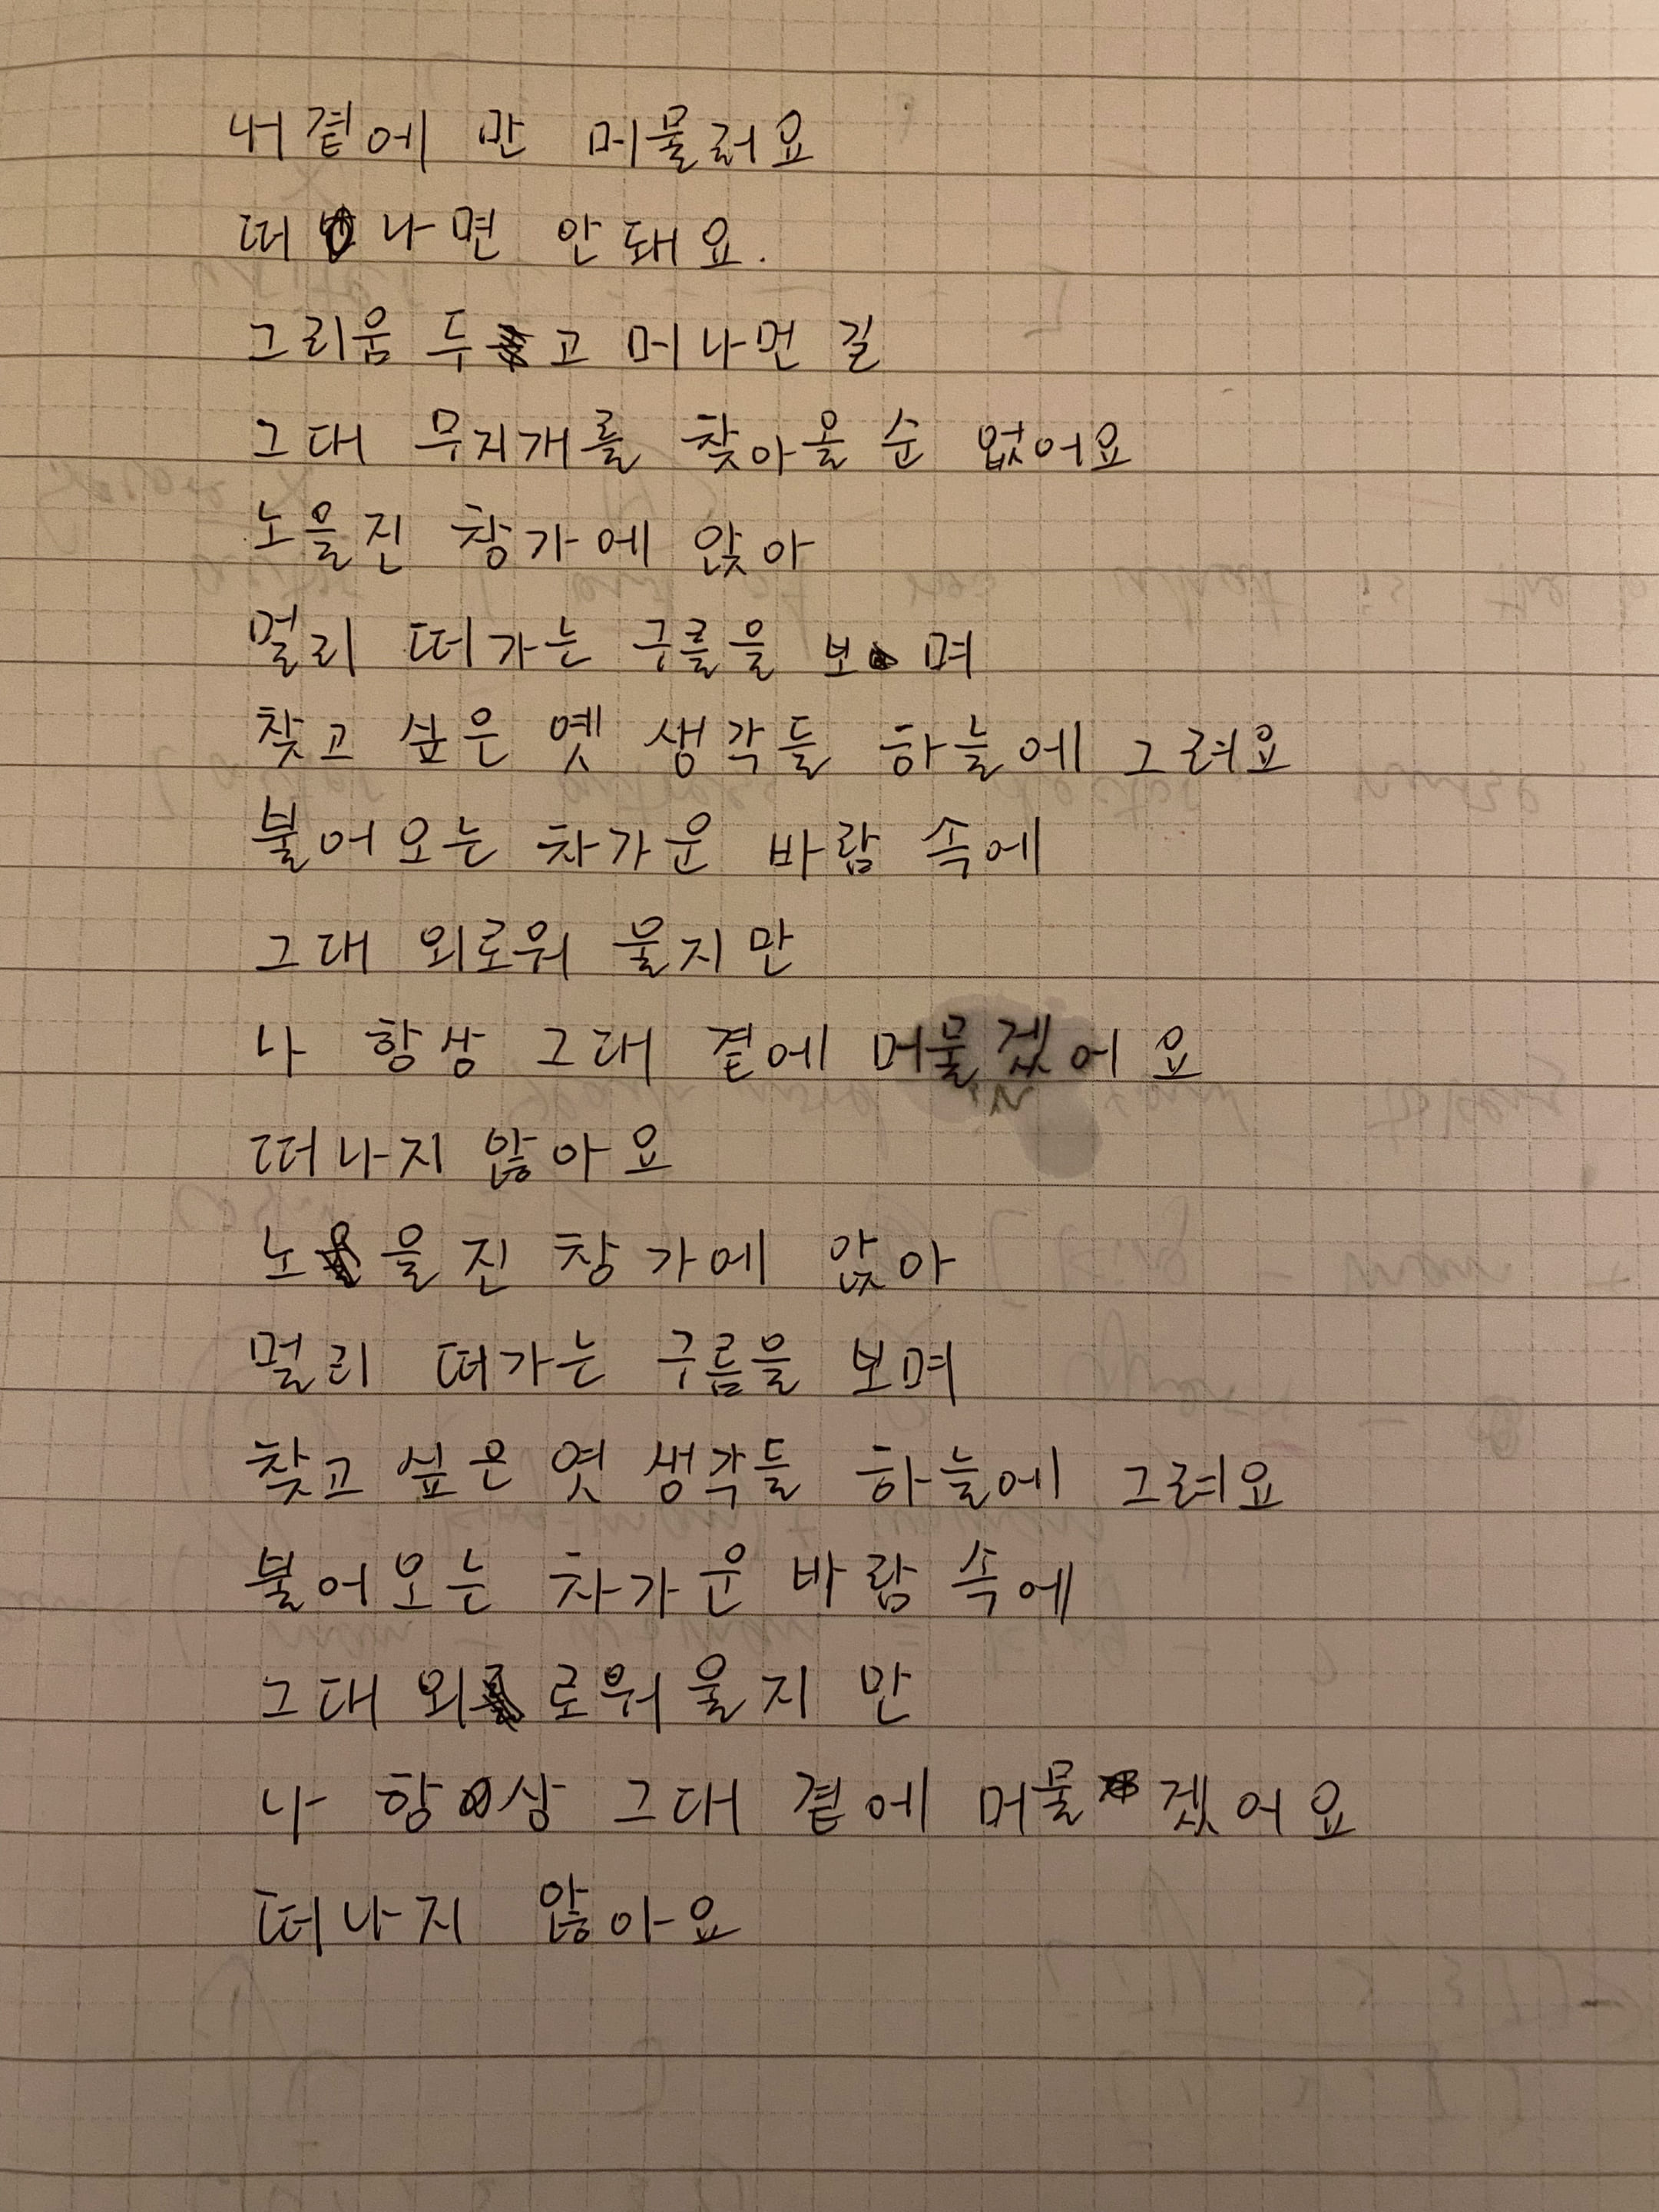 내 곁에 만 머물러요
떠나면 안돼요.
그리움 두고 머나먼 길
그대 무지개를 찾아올 순 없어요
노을진 창가에 앉아
멀리 떠가는 구름을 보며
찾고 싶은 옛 생각들 하늘에 그려요
불어오는 차가운 바람 속에
그대 외로워 울지만
나 항상 그대 곁에 머물겠어요
떠나지 않아요
노을진 창가에 앉아
멀리 떠가는 구름을 보며
찾고 싶은 엿 생각들 하늘에 그려요
불어오는 차가운 바람 속에
그대 외로워 울지만
나 항상 그대 곁에 머물겠어요
떠나지 않아요